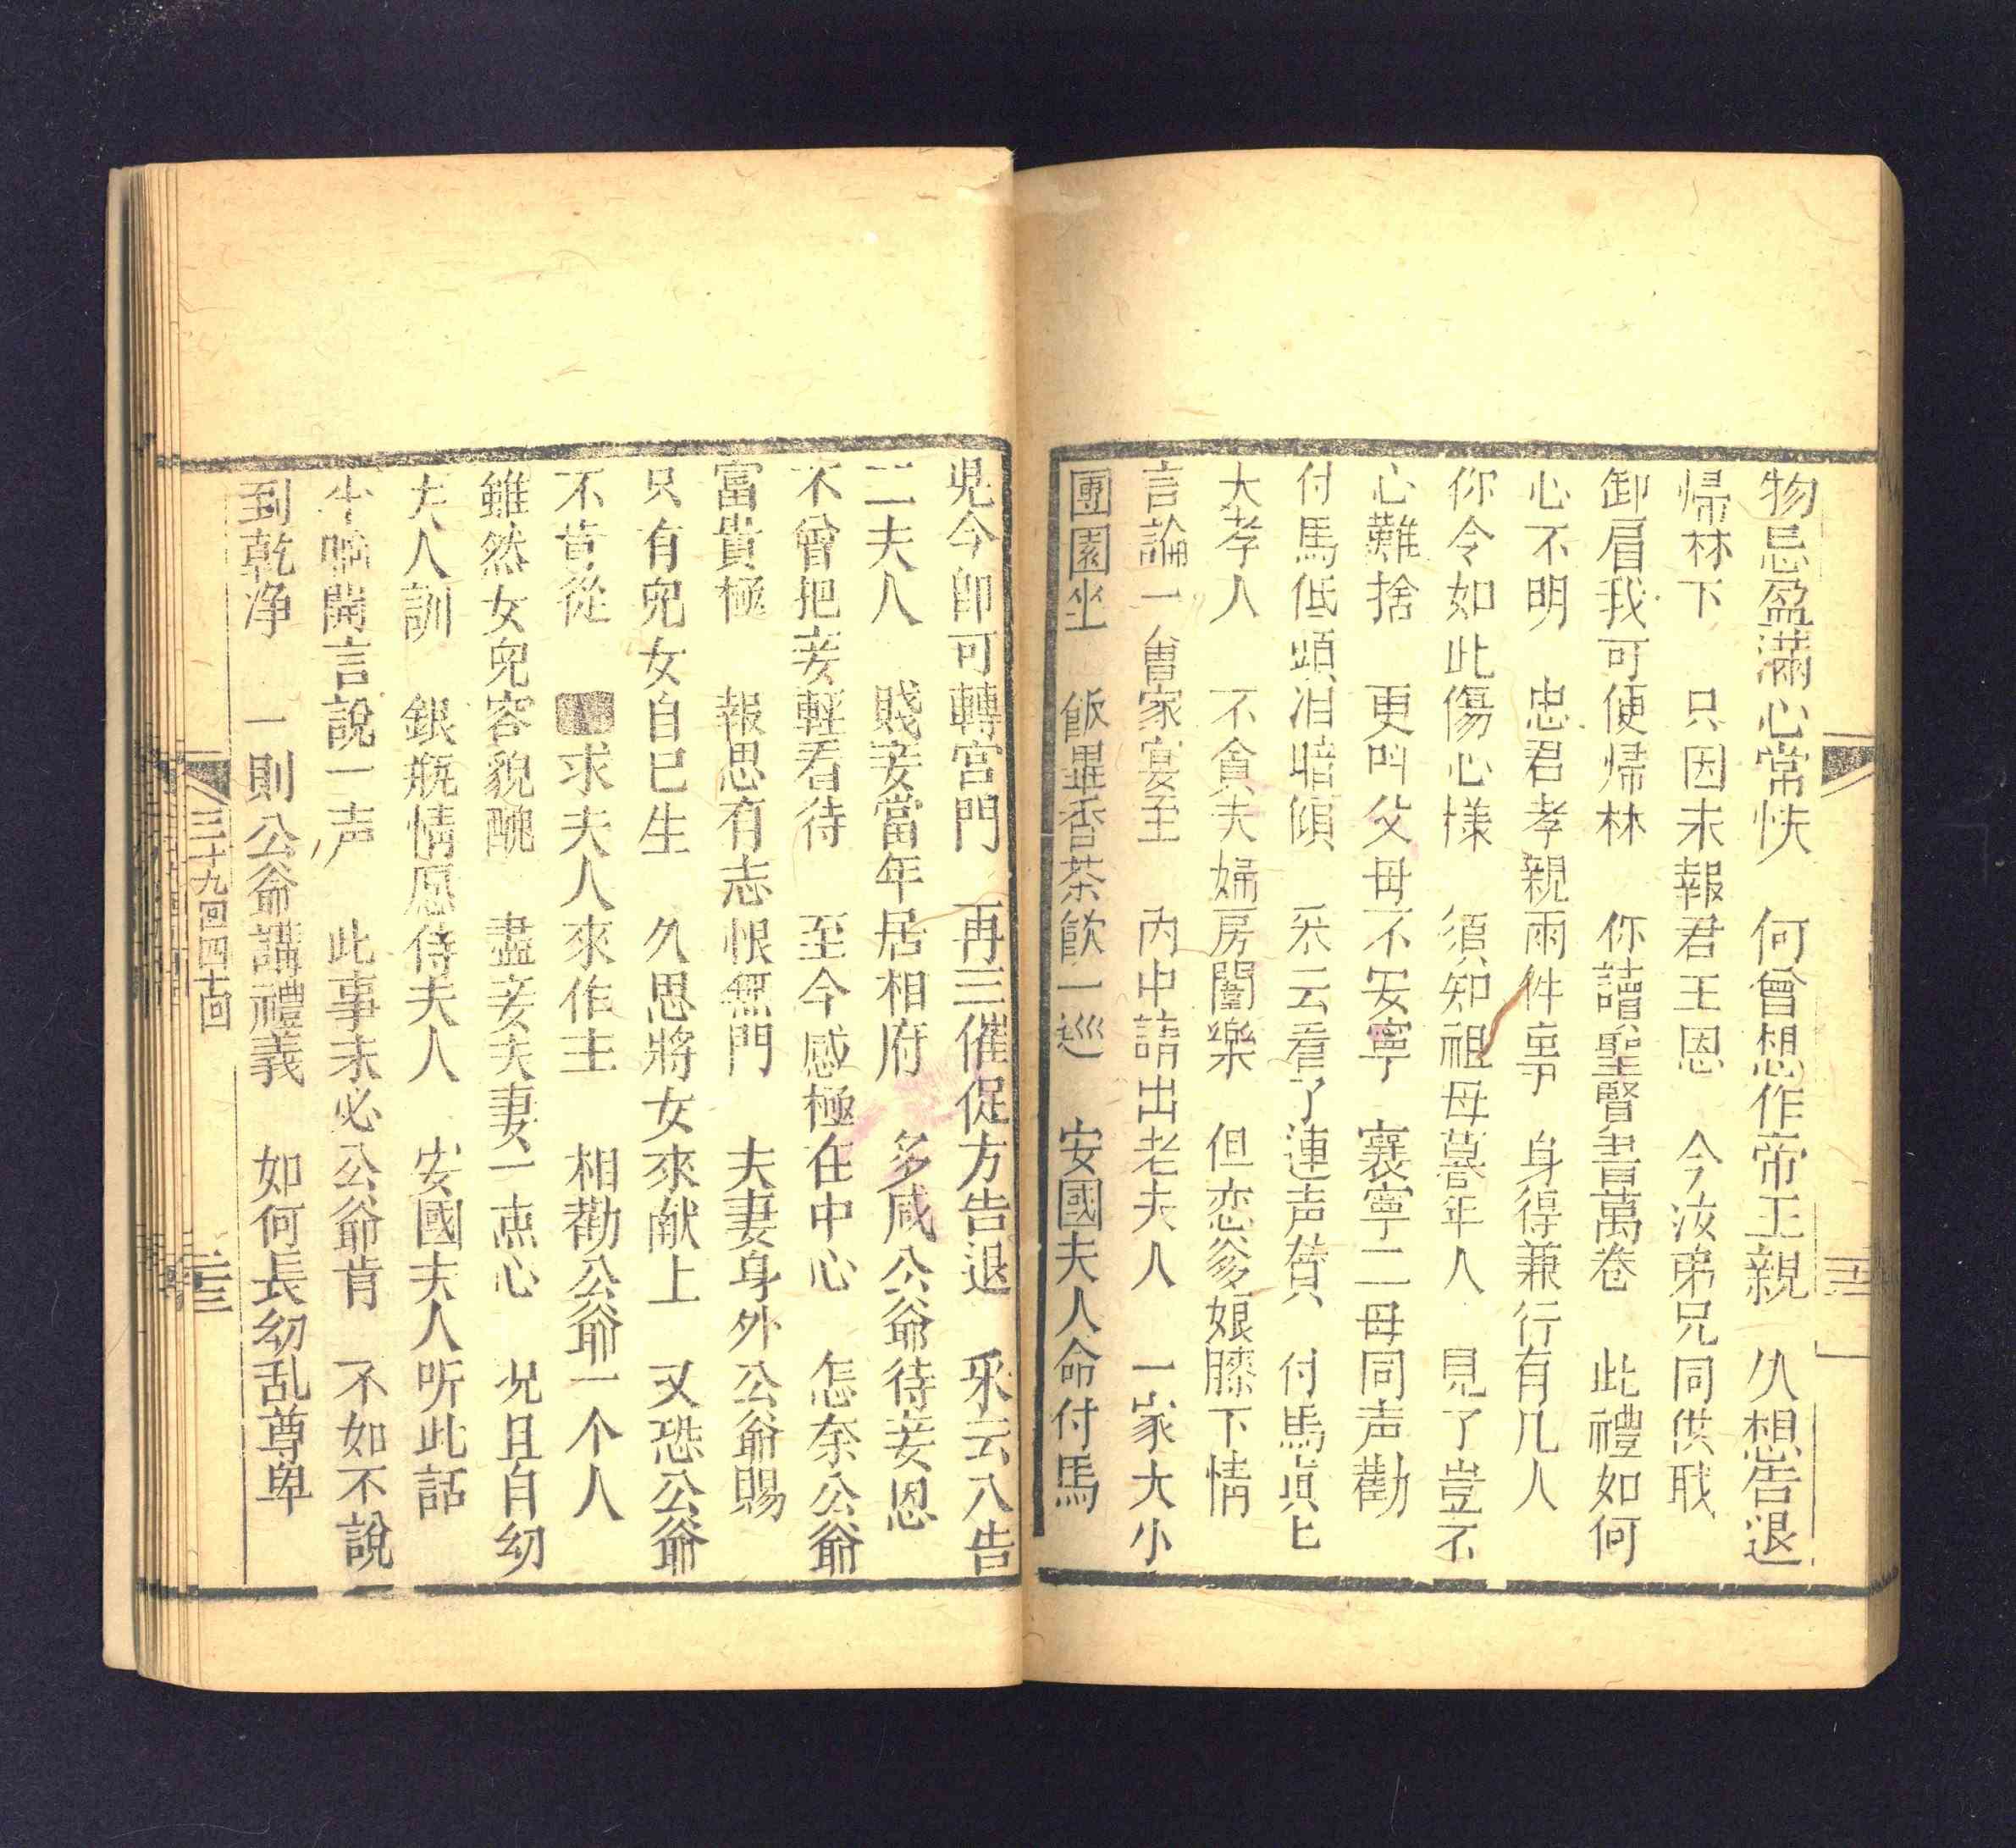 物忌盈滿心常怏　何曾想作帝王親　久想告退
帰林下　只因未報君王恩　今汝弟兄同供戝
卸眉我可便帰林　你讀聖賢書萬卷　此禮如何
心不明　忠君孝親兩件事　身得兼行有几人
你今如此傷心樣　須知祖母暮年人　見了豈不
心難捨　更叫父母不安寧　襄寧二母同声勸
付馬低頭泪暗傾　采云看了連声賛　付馬真
大孝人　不貪夫婦房闈樂　但恋爹娘膝下情
言論一會家宴至　內中請出老夫人　一家大小
團圓坐　飯畢香茶飲一巡　安國夫人命付馬
児今即可轉宮門　再三催促方告退　采云入告
二夫人　賤妾當年居相府　多咸公爺待妾恩
不曾把妾輕看待　至今感極在中心　怎奈公爺
富貴極　報恩有志恨無門　夫妻身外公爺賜
只有兒女自已生　久思將女來献上　又恐公爺
不肯從　求夫人來作主　相勸公爺一个人
雖然女兒容貌醜　盡妾夫妻一点心　况且自幼
夫人訓　銀瓶情愿侍夫人　安國夫人听此話
開言說一声　此事未必公爺肯　不如不說
到乾净　一則公爺講禮義　如何長幼乱尊卑
三十九回四十回
二十三